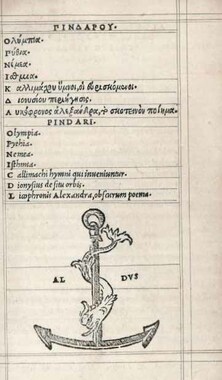 ΠΙΝΔΑΡΟΥ.
Ολύμπια.
Πύθια.
Νέμεα.
Ἴσθμια.
Καλλιμάχου ὕμνοι, οἱ εὑρισκόμενοι.
Διονυσίου περιήγησις.
Λυκόφρονος Ἀλεξάνδρα, τὸ σκοτεινὸν ποίημα.
PINDARI.
Olympia.
Pythia.
Nemea.
Isthmia.
Callimachi hymni qui inueniuntur.
Dionysius de situ orbis.
Licophronis Alexandra, obscurum poema.
AL DVS